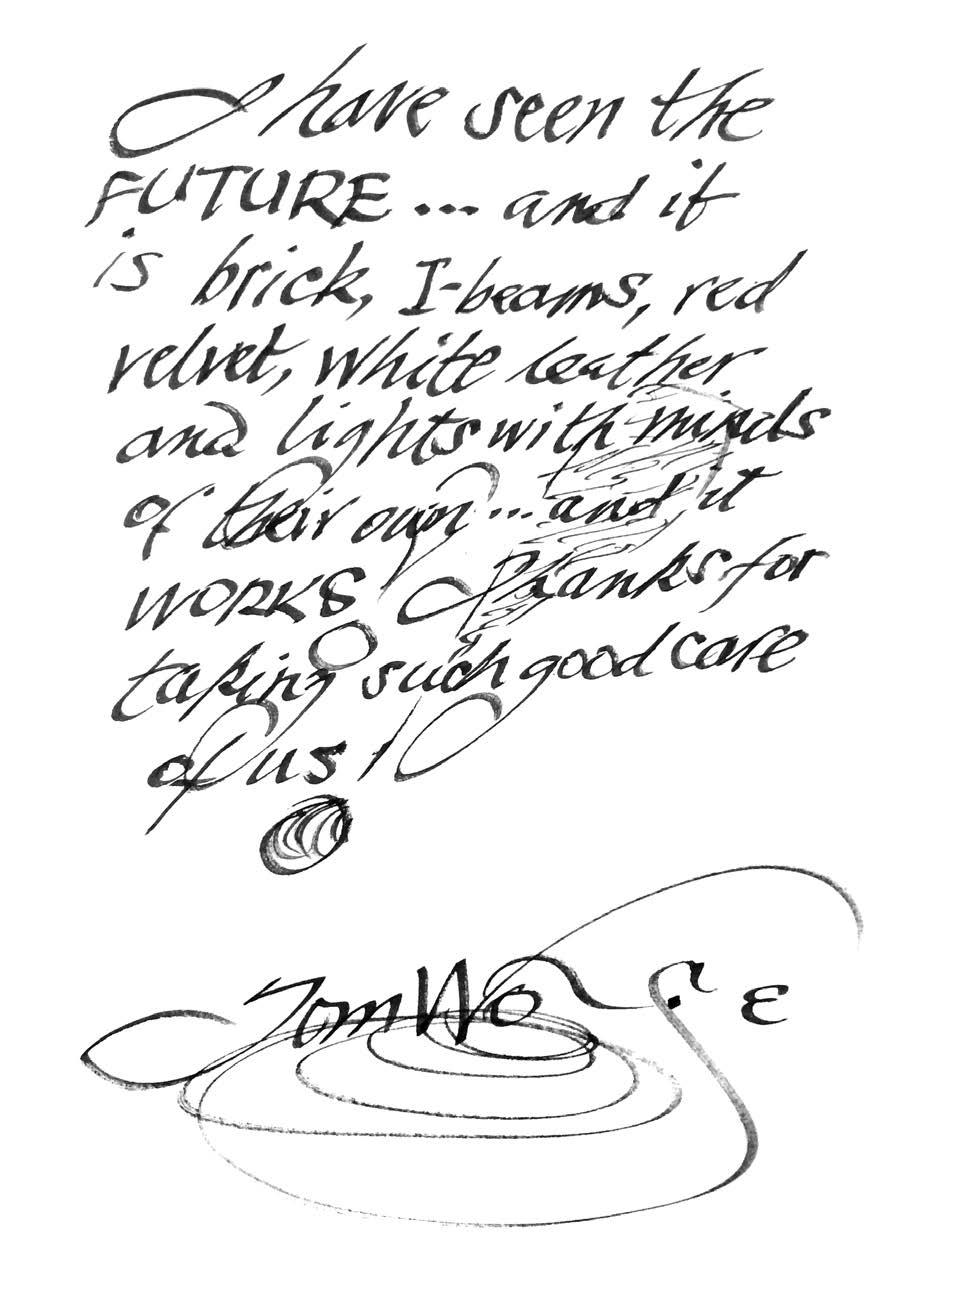 I have seen the
FUTURE... and it
is brick, I-beams, red
velvet, white leather
and lights with minds
of their own... and it
WORKS Thanks for
taking such good care
of us!
Tom Wolfe